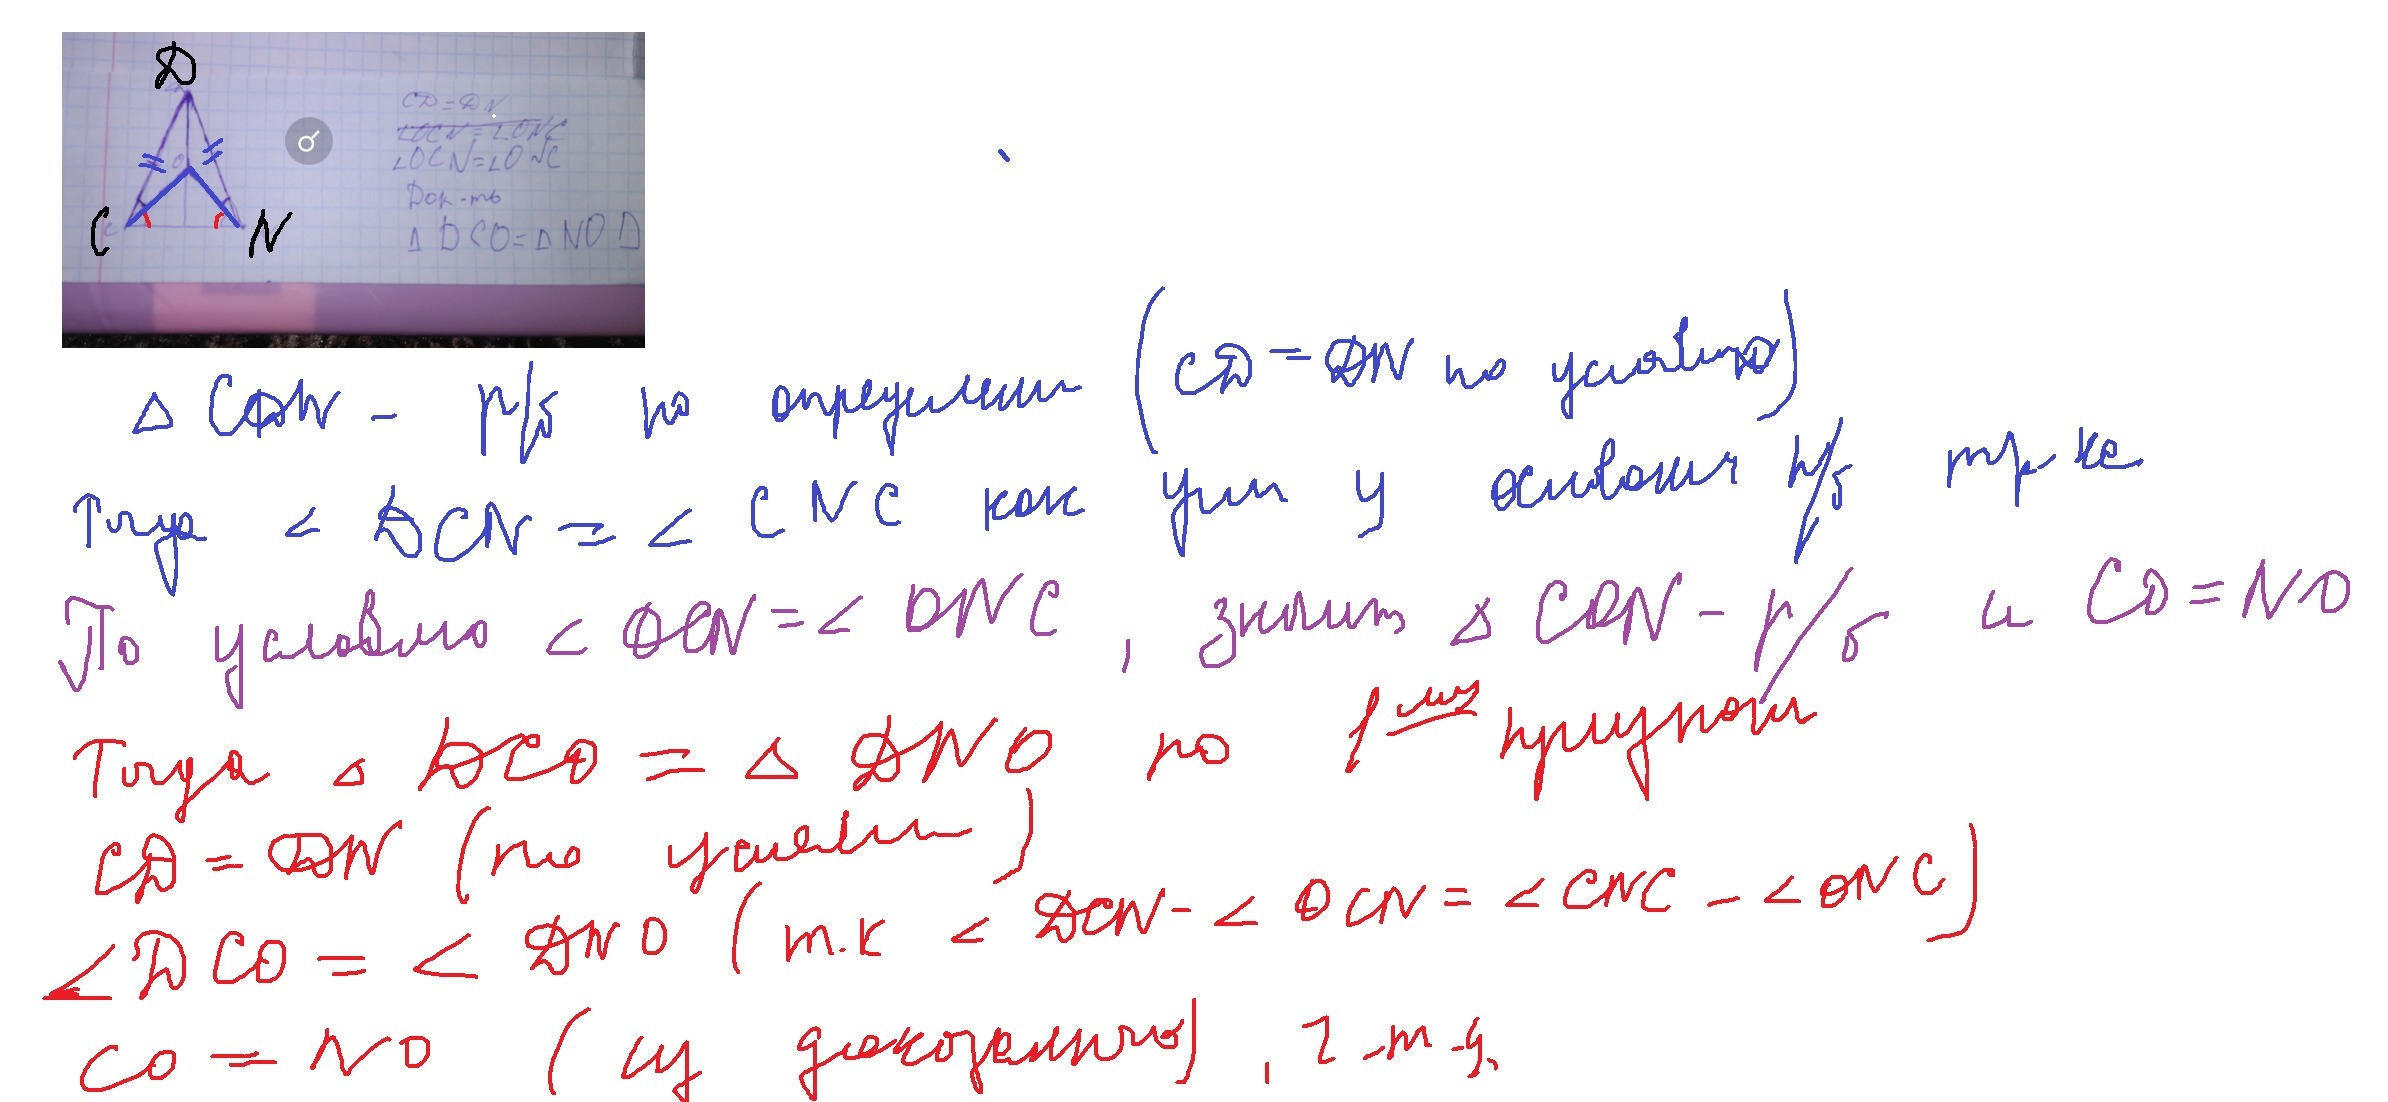 D
C
N
CD = DN
∠OCN = ∠ONC
∠OCN = ∠ONC
Док-ть
Δ DCO = Δ NOD
Δ CDN - р/б по определению (CD = DN по условию)
Тогда ∠ DCN = ∠ CNC как углы у основания р/б тр-ке
По условию ∠ OCN = ∠ ONC, значит Δ CON - р/б и CO = NO
Тогда Δ DCO = Δ DNO по 1 му признаку
CD = DN (по условию)
∠DCO = ∠ DNO (т.к ∠ DCN - ∠ OCN = ∠ CNC - ∠ ONC)
CO = NO (из доказанного), ч-т-д.